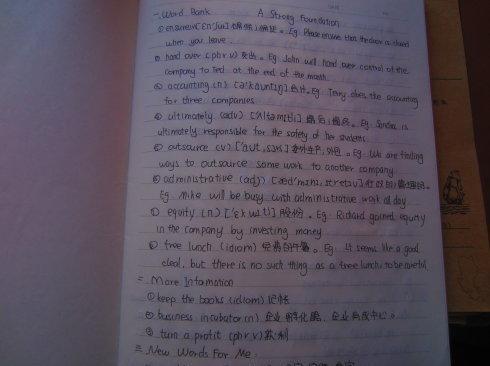 一. Word Bank A Strong Foundation
① ensure(v) [ɛn'ʃur] 确保; 保证。Eg. Please ensure that the door is closed
when you leave.
② hand over (phr v) 交出。Eg. John will hand over control of the
company to Ted at the end of the month.
③ accounting (n) [ə'kauntɪŋ] 会计。Eg. Terry does the accounting
for three companies.
④ ultimately (adv) 最后; 最终。Eg. Sandra is
ultimately responsible for the safety of her students
⑤ outsource (v) ['aut,sɔrs] 外包。Eg. We are finding
ways to outsource some work to another company
⑥ administrative (adj) [æd'mɪnɪ,stretɪv] 行政的; 管理的。
Eg. Mike will be busy with administrative work all day
⑦ equity (n) ['ɛkwɪtɪ] 股份。Eg. Richard gained equity
in the company by investing money
⑧ free lunch (idiom) 免费的午餐。Eg. It seems like a good
deal, but there is no such thing as a free lunch, so be careful
二 More Information
① keep the books (idiom) 记帐
② business incubator (n) 企业孵化器, 企业育成中心。
③ turn a profit (phr v) 获利
三 New Words For Me: